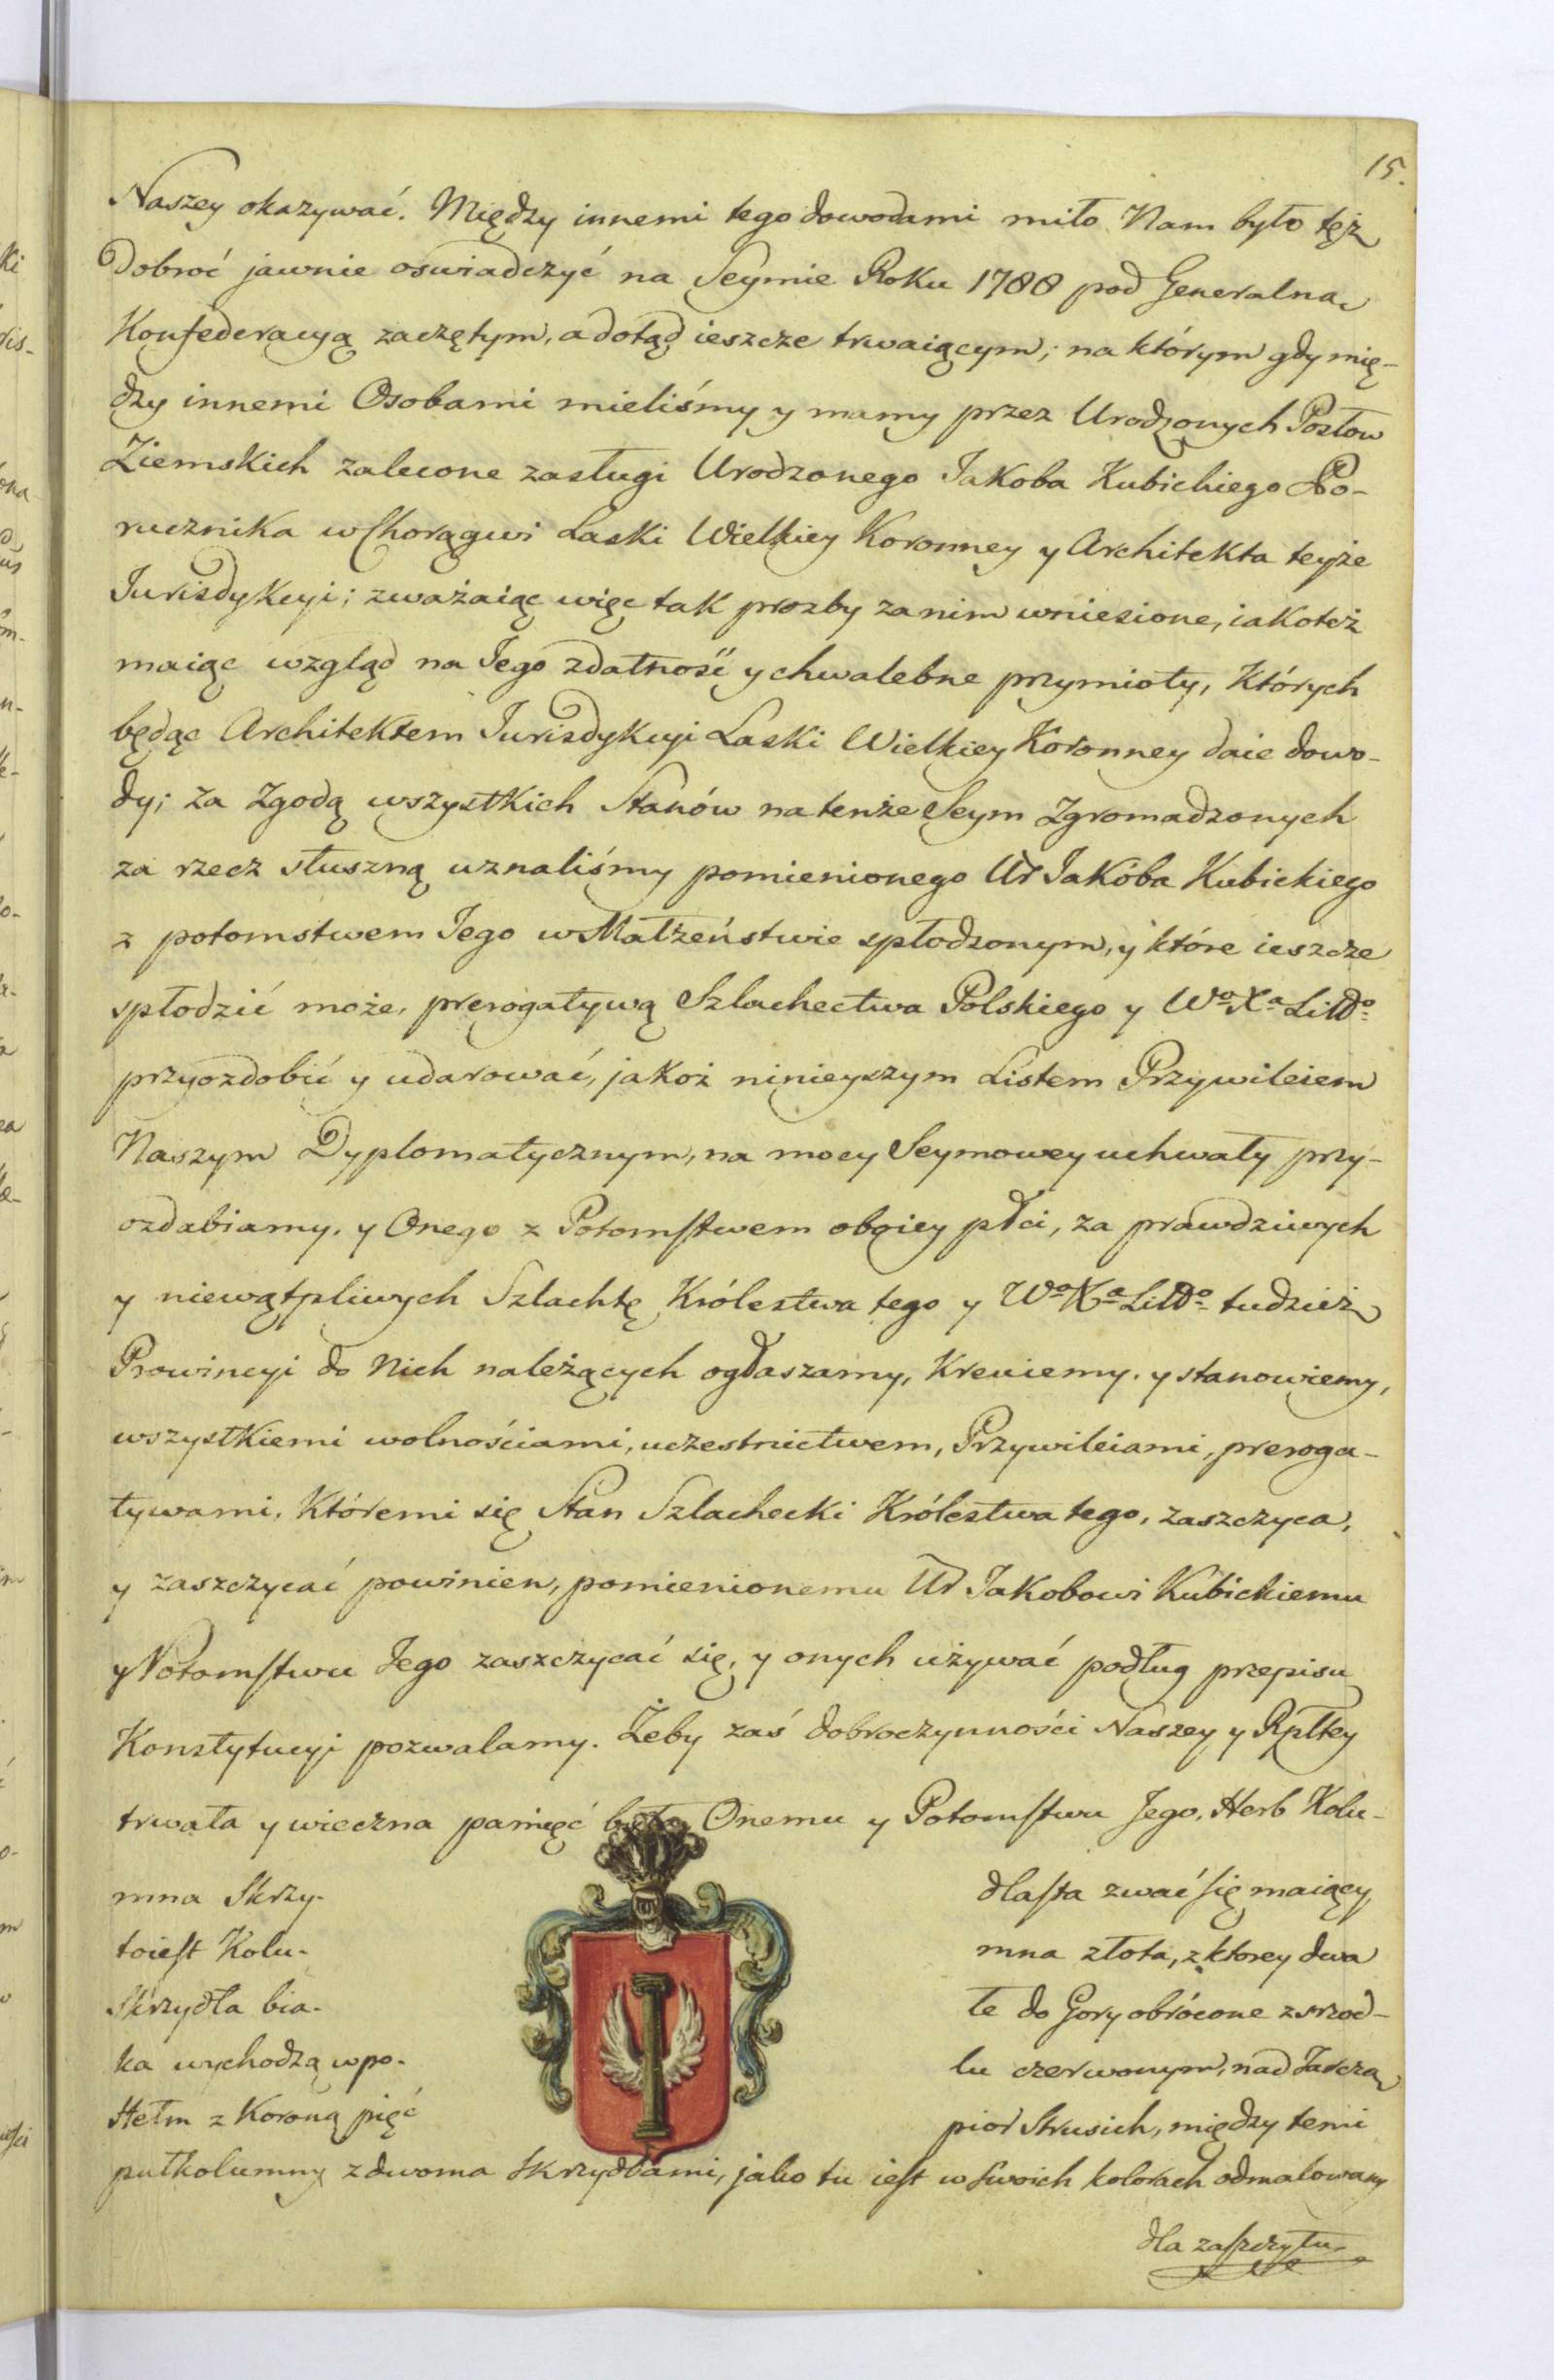 15.
Naszey okazywać. Między innemi tego dowodami miło Nam było tęż
Dobroć jawnie oswiadczyć na Seymie Roku 1788 pod Generalną
Konfederacyą zaczętym, a dotąd ieszcze trwaiącym; na którym gdy mię-
dzy innemi Osobami mieliśmy y mamy przez Urodzonych Posłow
Ziemskich zalecone zasługi Urodzonego Jakoba Kubickiego Po-
rucznika w Chorągwi Laski Wielkiey Koronney y Architekta teyże
Jurisdykcyi; zważaiąc więc tak prozby za nim wniesione, iakoteż
maiąc wzgląd na Jego zdatność y chwalebne przymioty, których
będąc Architektem Jurisdykcyi Laski Wielkiey Koronney daie dowo-
dy; za zgodą wszystkich Stanów na tenże Seym zgromadzonych
za rzecz słuszną uznaliśmy pomienionego Ur Jakóba Kubickiego
z potomstwem Jego w Małżeństwie spłodzonym, y które ieszcze
spłodzić może, prerogatywą Szlachectwa Polskiego y Wo Xa Litto
przyozdobić y udarować, jakoż ninieyszym Listem Przywileiem
Naszym Dyplomatycznym, na mocy Seymowey uchwały przy-
ozdabiamy. y Onego z Potomstwem oboiey płci, za prawdziwych
y niewątpliwych Szlachtę Królestwa tego y Wo Xa Litto tudzież
Prowincyi do Nich należących ogłaszamy, kreuiemy. y stanowiemy,
wszystkiemi wolnościami, uczestnictwem, Przywileiami, preroga-
tywami, któremi się Stan Szlachecki Królestwa tego, zaszczyca,
y zaszczycać powinien, pomienionemu Ur Jakobowi Kubickiemu
y Potomstwu Jego zaszczycać się, y onych używać podług przepisu
Konstytucyi pozwalamy. Żeby zaś dobroczynności Naszey y Rpltey
trwała y wieczna pamięć była Onemu y Potomstwu Jego, Herb Kolu-
mna Skrzy- dlasta zwać się maiący,
toiest Kolu- mna złota, z ktorey dwa
Skrzydła bia- łe do Gory obrócone z srzod-
ka wychodzą w po- lu czerwonym, nad Tarczą
Hełm z Koroną pięć pior Strusich, między temi
pułkolumny z dwoma Skrzydłami, jako tu iest w swoich kolorach odmalowany
dla zaszczytu